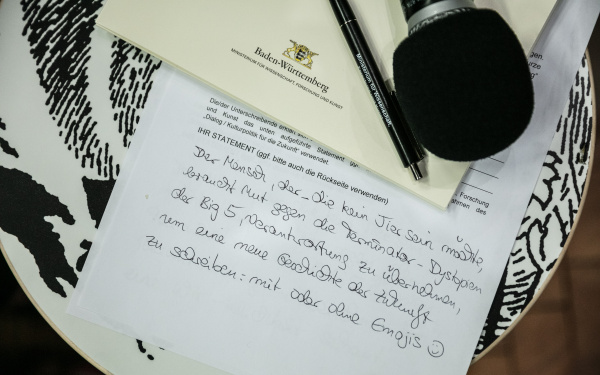 Baden-Württemberg
MINISTERIUM FÜR WISSENSCHAFT, FORSCHUNG UND KUNST
und Kunst das unten aufgeführte Statement
„Dialog | Kulturpolitik für die Zukunft“ verwendet.
IHR STATEMENT (ggf. bitte auch die Rückseite verwenden)
Der Mensch, der _ die kein Tier sein möchte,
braucht Mut gegen die Terminator-Dystopien
der Big 5, Verantwortung zu übernehmen,
um eine neue Geschichte der Zukunft
zu schreiben: mit oder ohne Emojis ☺
gen.
Forschung
des